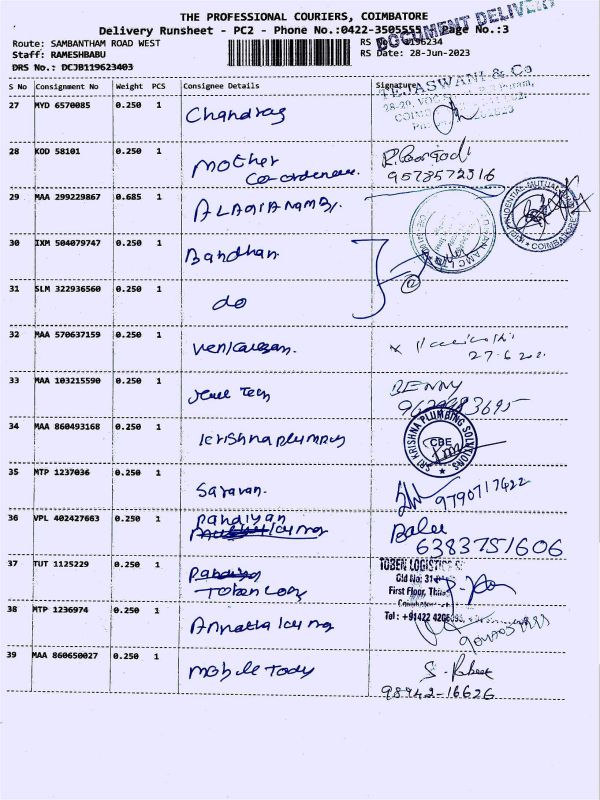 THE PROFESSIONAL COURIERS, COIMBATORE
Delivery Runsheet - PC2 - Phone No.:0422-3505555 Page No.:3
DOCUMENT DELIVERY
Route: SAMBANTHAM ROAD WEST
RS No.: 1196234
Staff: RAMESHBABU
RS Date: 28-Jun-2023
DRS No.: DCJB119623403
S No Consignment No Weight PCS Consignee Details Signature
TEJASWANI & Co
27 MYD 6570085 0.250 1 Chandras
28 KOD 58101 0.250 1 Mother
9578572516
29 MAA 299229867 0.685 1
COIMBATORE
30 IXM 504079747 0.250 1 Bandhan
31 SLM 322936560 0.250 1 do
32 MAA 570637159 0.250 1 Venkatesan.
27.6.20
33 MAA 103215590 0.250 1 Jewel Tech
BENNY
34 MAA 860493168 0.250 1 Krishna Plumbing
SRI KRISHNA PLUMBING SOLUTIONS
CBE
35 MTP 1237036 0.250 1 Saravan.
9790717422
36 VPL 402427663 0.250 1 Pandiyan
Balu
6383751606
37 TUT 1125229 0.250 1
Toben Log
TOBEN LOGISTICS
Old No: 31
First Floor,
Tel : +91422
38 MTP 1236974 0.250 1
39 MAA 860650027 0.250 1 Mobile Tody
98942-16626